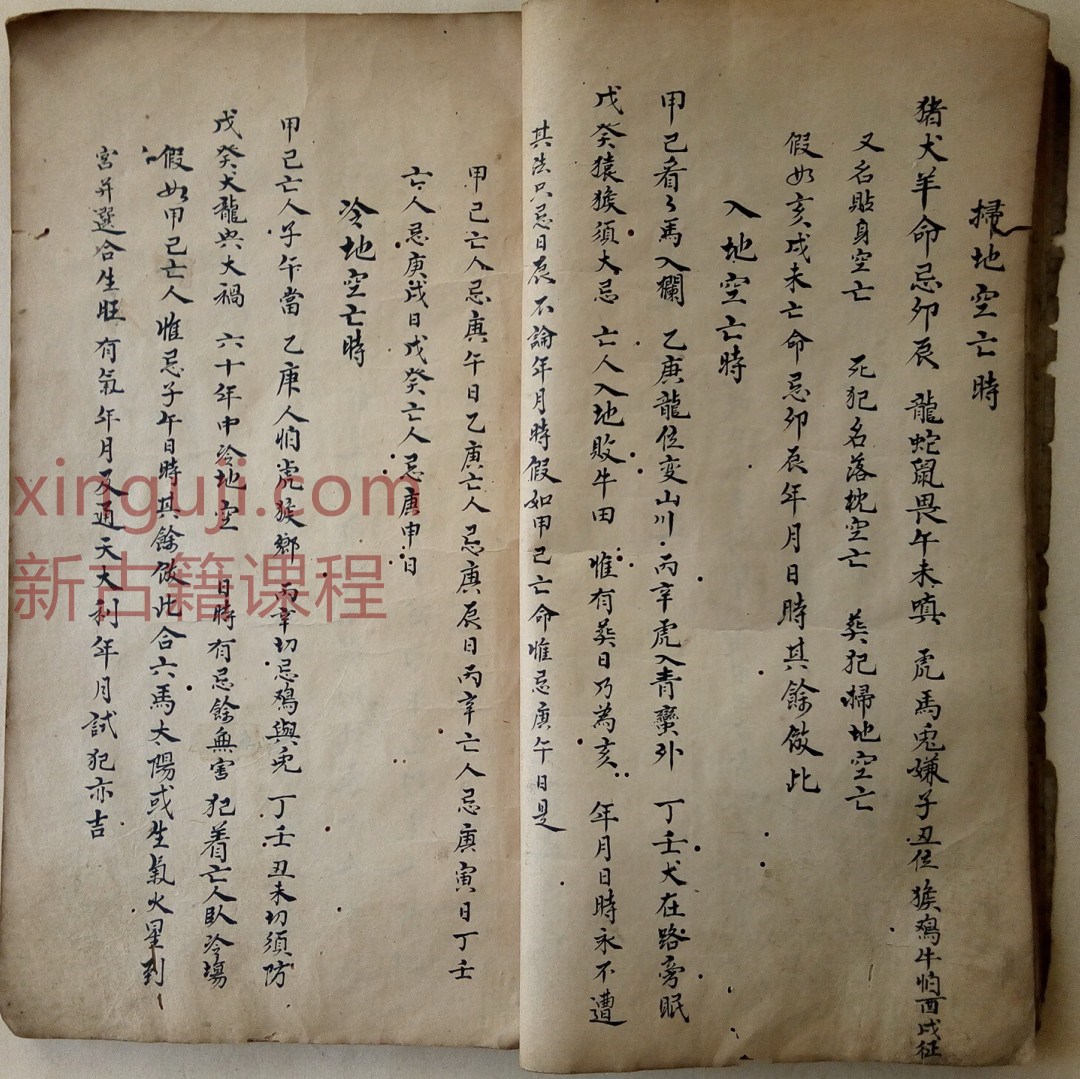 掃地空亡時
猪犬羊命忌卯辰 龍蛇鼠畏午未嗔 虎馬兎嫌子丑位 猴鷄牛怕酉戌征
又名貼身空亡 死犯名落枕空亡 葬犯掃地空亡
假如亥戌未亡命忌卯辰年月日時其餘倣此
入地空亡時
甲己看々馬入欄 乙庚龍位変山川 丙辛虎入青巒外 丁壬犬在路旁眠
戊癸猿猴須大忌 亡人入地敗牛田 惟有葬日乃為亥 年月日時永不遭
其法只忌日辰不論年月時假如甲己亡命惟忌庚午日是
甲己亡人忌庚午日乙庚亡人忌庚辰日丙辛亡人忌庚寅日丁壬
亡人忌庚戌日戊癸亡人忌庚申日
冷地空亡時
甲己亡人子午當 乙庚人怕虎猴鄉 丙辛切忌鷄與兎 丁壬丑未切須防
戊癸犬龍與大禍 六十年中冷地空 日時有忌餘無害 犯着亡人臥冷塲
假如甲己亡人惟忌子午日時其餘倣此合六馬太陽或生氣火星到
宮并選合生旺有氣年月及通天大利年月試犯亦吉
xinguji.com
新古籍课程